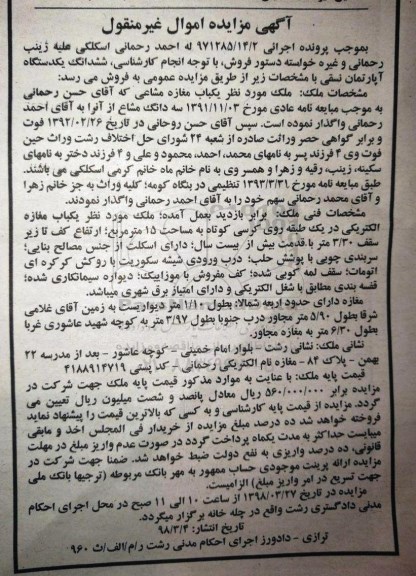 آگهی مزایده اموال غیرمنقول
بموجب پرونده اجرائی ۹۷۱۲۸۵/۱۴/۲ له احمد رحمانی اسکلکی علیه زینب
رحمانی و غیره خواسته دستور فروش، با توجه انجام کارشناسی، ششدانگ یکدستگاه
آپارتمان نسقی با مشخصات زیر از طریق مزایده عمومی به فروش می رسد:
مشخصات ملک: ملک مورد نظر یکباب مغازه مشاعی که آقای حسن رحمانی
به موجب مبایعه نامه عادی مورخ ۱۳۹۱/۱۱/۰۳ سه دانگ مشاع از آنرا به آقای احمد
رحمانی واگذار نموده است. سپس آقای حسن روحانی در تاریخ ۱۳۹۲/۰۲/۲۶ فوت
و برابر گواهی حصر وراثت صادره از شعبه ۲۴ شورای حل اختلاف رشت وراث حین
فوت وی ۴ فرزند پسر به نامهای محمد، احمد، محمود و علی و ۴ فرزند دختر به نامهای
سکینه، زینب، رقیه و زهرا و همسر وی به نام خانم ماه خانم کرمی اسکلکی می باشند.
طبق مبایعه نامه مورخ ۱۳۹۳/۳/۳۱ تنظیمی در بنگاه کومه؛ کلیه وراث به جز خانم زهرا
و آقای محمد رحمانی سهم خود را به آقای احمد رحمانی واگذار نمودند.
مشخصات فنی ملک: برابر بازدید بعمل آمده؛ ملک مورد نظر یکباب مغازه
الکتریکی در یک طبقه روی کرسی کوتاه به مساحت ۱۵ مترمربع؛ ارتفاع کف تا زیر
سقف ۳/۳۰ متر با قدمت بیش از بیست سال؛ دارای اسکلت از جنس مصالح بنایی؛
سربندی چوبی با پوشش حلب؛ درب ورودی شیشه سکوریت با روکش کرکره ای
اتومات؛ سقف لمه کوبی شده؛ کف مفروش با موزاییک؛ دیواره سیمانکاری شده؛
قفسه بندی مطابق با شغل الکتریکی و دارای امتیاز برق شهری میباشد.
مغازه دارای حدود اربعه شمالا: بطول ۱/۱۰ متر دیواریست به زمین آقای غلامی
شرقا بطول ۵/۹۰ متر مجاور درب جنوبا بطول ۳/۹۷ متر به کوچه شهید عاشوری غربا
بطول ۶/۳۰ متر به مغازه مجاور.
نشانی ملک: نشانی رشت - بلوار امام خمینی - کوچه عاشور - بعد از مدرسه ۲۲
بهمن - پلاک ۸۴ - مغازه نام الکتریکی رحمانی - کد پستی ۴۱۸۸۹۱۴۷۱۹
قیمت پایه ملک: با عنایت به موارد مذکور قیمت پایه ملک جهت شرکت در
مزایده برابر ۵۶۰/۰۰۰/۰۰۰ ریال معادل پانصد و شصت میلیون ریال تعیین می
گردد. مزایده از قیمت پایه کارشناسی و به کسی که بالاترین قیمت را پیشنهاد نماید
فروخته خواهد شد ده درصد مبلغ مزایده از خریدار فی المجلس اخذ و مابقی
میبایست حداکثر به مدت یکماه پرداخت گردد در صورت عدم واریز مبلغ در مهلت
قانونی، ده درصد واریزی به نفع دولت ضبط خواهد شد. ضمنا جهت شرکت در
مزایده ارائه پرینت موجودی حساب ممهور به مهر بانک مربوطه (ترجیها بانک ملی
جهت تسریع در امر واریز مبلغ) الزامیست.
مزایده در تاریخ ۱۳۹۸/۰۳/۲۷ از ساعت ۱۰ الی ۱۱ صبح در محل اجرای احکام
مدنی دادگستری رشت واقع در چله خانه برگزار میگردد.
تاریخ انتشار: ۹۸/۳/۴
ترازی - دادورز اجرای احکام مدنی رشت ر/م/الف/ث ۹۶۰